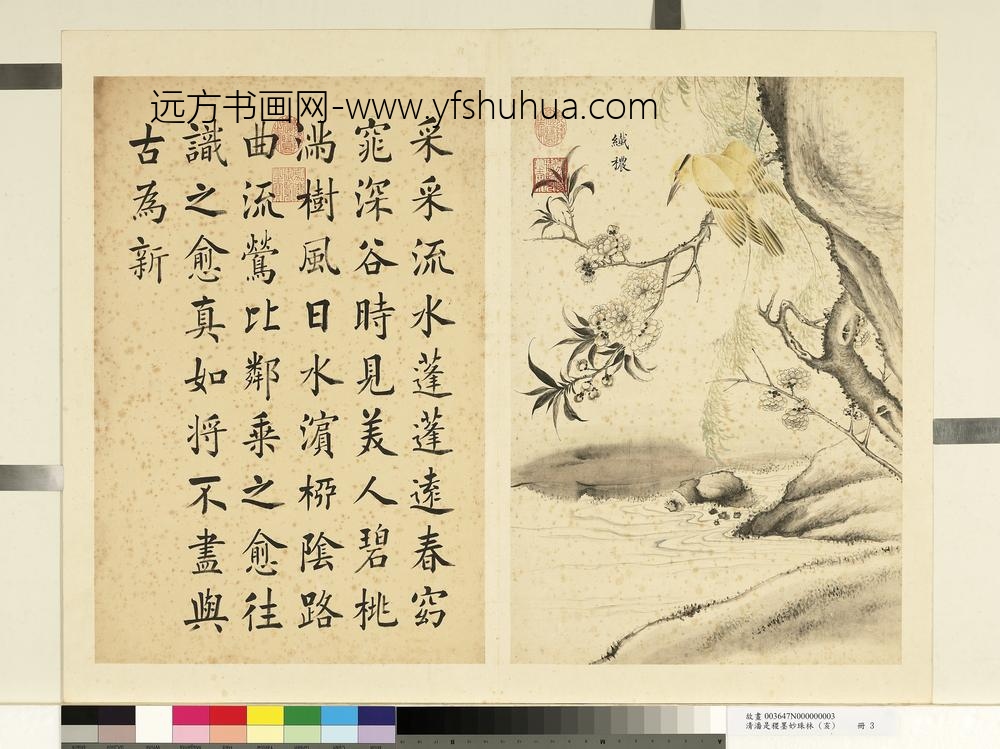 远方书画网-www.yfshuhua.com
纖穠
采采流水蓬蓬遠春窈
窕深谷時見美人碧桃
滿樹風日水濵桺陰路
曲流鶯比鄰乘之愈往
識之愈真如将不盡與
古為新
故畫 003647N000000003
清潘是稷墨妙珠林(亥) 冊 3